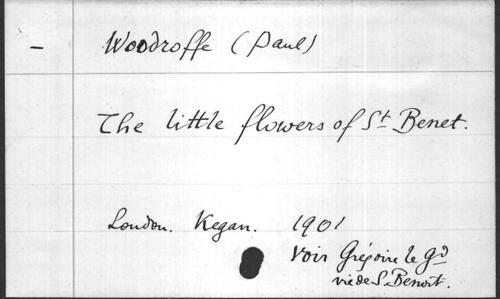 — Woodroffe (Paul)
The little flowers of St Benet.
London. Kegan. 1901
Voir Grégoire le Gd
vie de S. Benoit.